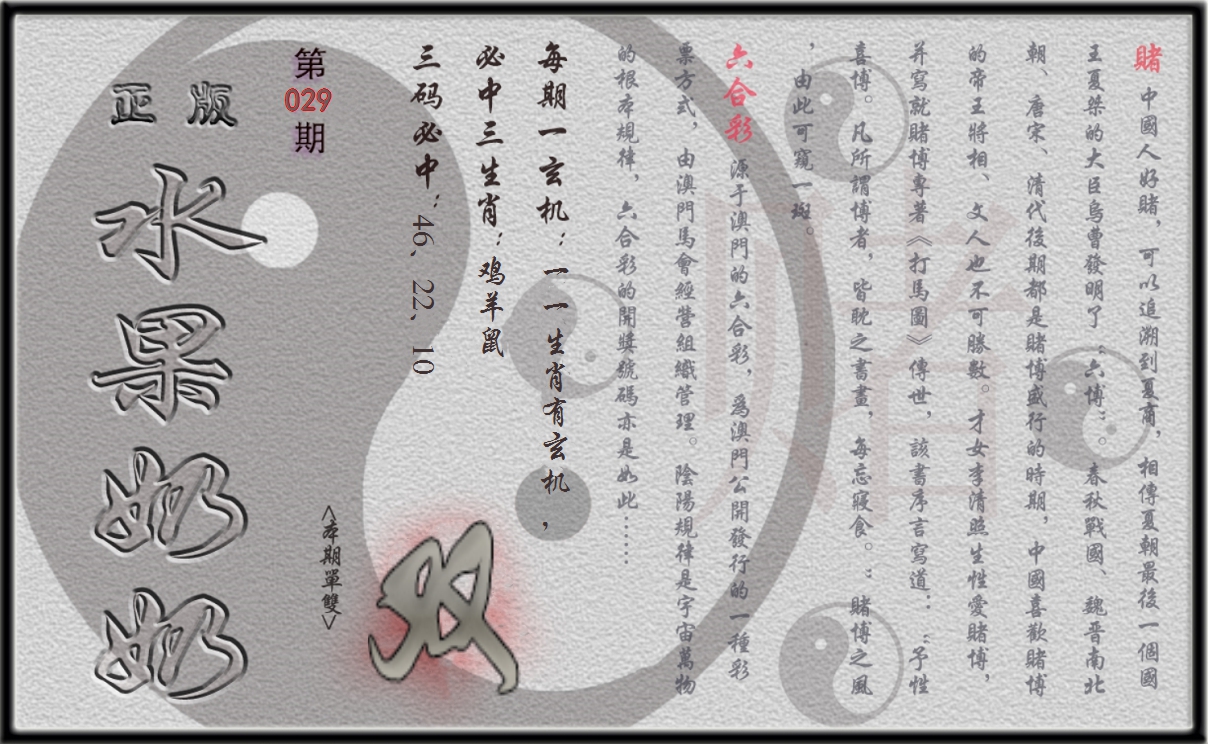 賭 中國人好賭，可以追溯到夏商，相傳夏朝最後一個國
王夏桀的大臣烏曹發明了“六博”。春秋戰國、魏晉南北
朝、唐宋、清代後期都是賭博盛行的時期，中國喜歡賭博
的帝王將相、文人也不可勝數。才女李清照生性愛賭博，
并寫就賭博專著《打馬圖》傳世，該書序言寫道：“予性
喜博。凡所謂博者，皆耽之書畫，每忘寢食。：賭博之風
，由此可窺一斑。
六合彩 源于澳門的六合彩，爲澳門公開發行的一種彩
票方式，由澳門馬會經營組織管理。陰陽規律是宇宙萬物
的根本規律，六合彩的開獎號碼亦是如此……
每期一玄机：一一生肖有玄机，
必中三生肖：鸡羊鼠
三码必中：46、22、10
双
<本期單雙>
第
029
期
正版
水果奶奶
赌